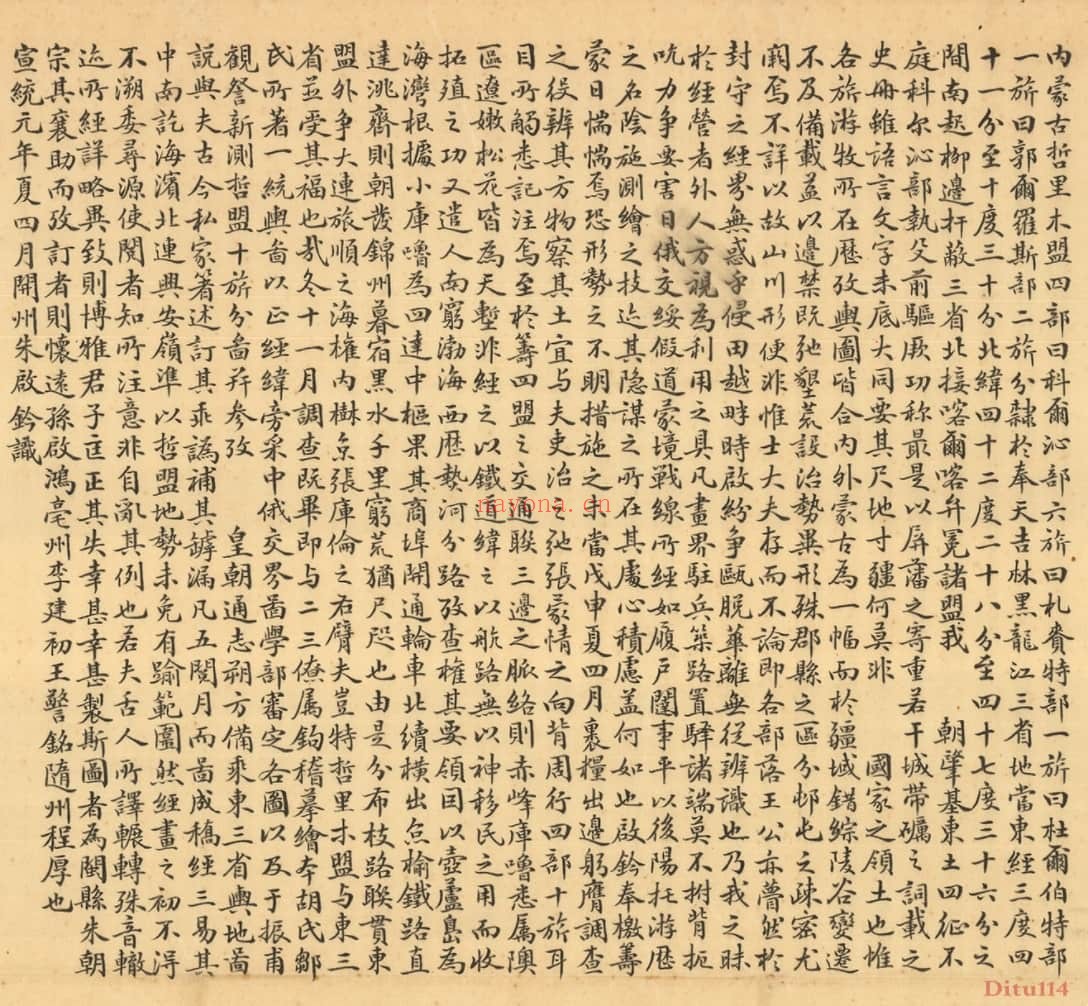 內蒙古哲里木盟四部曰科爾沁部六旂曰札賚特部一旂曰杜爾伯特部
一旂曰郭爾羅斯部二旂分隸於奉天吉林黑龍江三省地當東經三度四
十一分至十度三十分北緯四十二度二十八分至四十七度三十六分之
間南起柳邊扞蔽三省北接喀爾喀弁冕諸盟我　朝肇基東土四征不
庭科尔沁部執殳前驅厥功称最是以屏藩之寄重若干城帶礪之詞載之
史冊雖語言文字未底大同要其尺地寸疆何莫非　國家之領土也惟
各旂游牧所在歷攷輿圖皆合內外蒙古為一幅而於疆域錯綜陵谷變遷
不及備載益以邊禁既弛墾荒設治勢異形殊郡縣之區分邨屯之疎密尤
闕焉不詳以故山川形便非惟士大夫存而不論即各部落王公亦瞢然於
封守之經界無惑乎侵田越畔時啟紛争甌脱華離無從辨識也乃我之昧
於經營者外人方視為利用之具凡畫界駐兵築路置驛諸端莫不拊背扼
吭力争要害日俄交綏假道蒙境戰線所經如履戶闥事平以後陽托游歷
之名陰施測繪之技迹其隐謀之所在其處心積慮盖何如也啟鈐奉檄籌
蒙日惴惴焉恐形勢之不明措施之未當戊申夏四月裹糧出邊躬膺調查
之役辨其方物察其土宜与夫吏治之弛張蒙情之向背周行四部十旂耳
目所觸悉記注焉至於籌四盟之交通聯三邊之脉絡則赤峰庫嚕悉属隩
區遼嫩松花皆為天塹非經之以鐵道緯之以航路無以神移民之用而收
拓殖之功又遣人南窮渤海西歷熱河分路攷查榷其要領因以壺蘆島為
海灣根據小庫嚕為四達中樞果其商埠開通輪車北續横出京榆鐵路直
達洮齊則朝發錦州暮宿黑水千里窮荒猶尺咫也由是分布枝路聯貫東
盟外争大連旅順之海權內樹京張庫倫之右臂夫豈特哲里木盟与東三
省並受其福也哉冬十一月調查既畢即与二三僚属鉤稽摹繪本胡氏鄒
氏所著一統輿啚以正經緯旁采中俄交界啚學部審定各圖以及于振甫
観詧新測哲盟十旂分啚幷参攷　皇朝通志朔方備乘東三省輿地啚
說與夫古今私家著述訂其乖譌補其罅漏凡五閱月而啚成稿經三易其
中南訖海濱北連興安嶺準以哲盟地勢未免有踰範圍然經畫之初不淂
不溯委尋源使閱者知所注意非自亂其例也若夫舌人所譯輾轉殊音轍
迹所經詳略異致則博雅君子匡正其失幸甚幸甚製斯圖者為閩縣朱朝
宗其襄助而攷訂者則懷遠孫啟鴻亳州李建初王詧銘隨州程厚也
宣統元年夏四月開州朱啟鈐識
nayona.cn
Ditu114